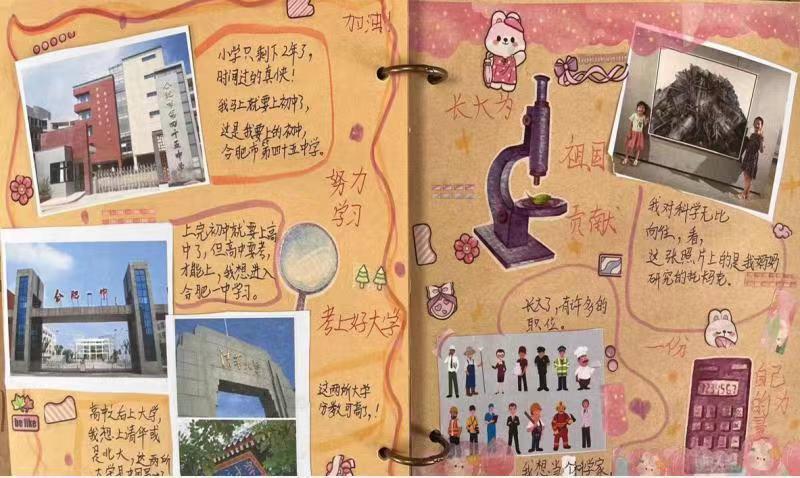 加油!
小学只剩下2年了,
时间过的真快!
我马上就要上初中了,
这是我要上的初中,
合肥市第四十五中学。
合肥市第四十五中学
努力
学习
上完初中就要上高
中了,但高中要考,
才能上,我想进入
合肥一中学习。
合肥一中
考上好大学
清华大学
这两所大学
分数可高了,!
高中之后上大学,
我想上清华或
是北大,这两所
be like
长大为
祖国
贡献
一份
自己
的
我对科学无比
向往,看,
这张照片上的是我妈妈
研究的托卡马克。
长大了,有许多的
职位。
1234567
我想当个科学家